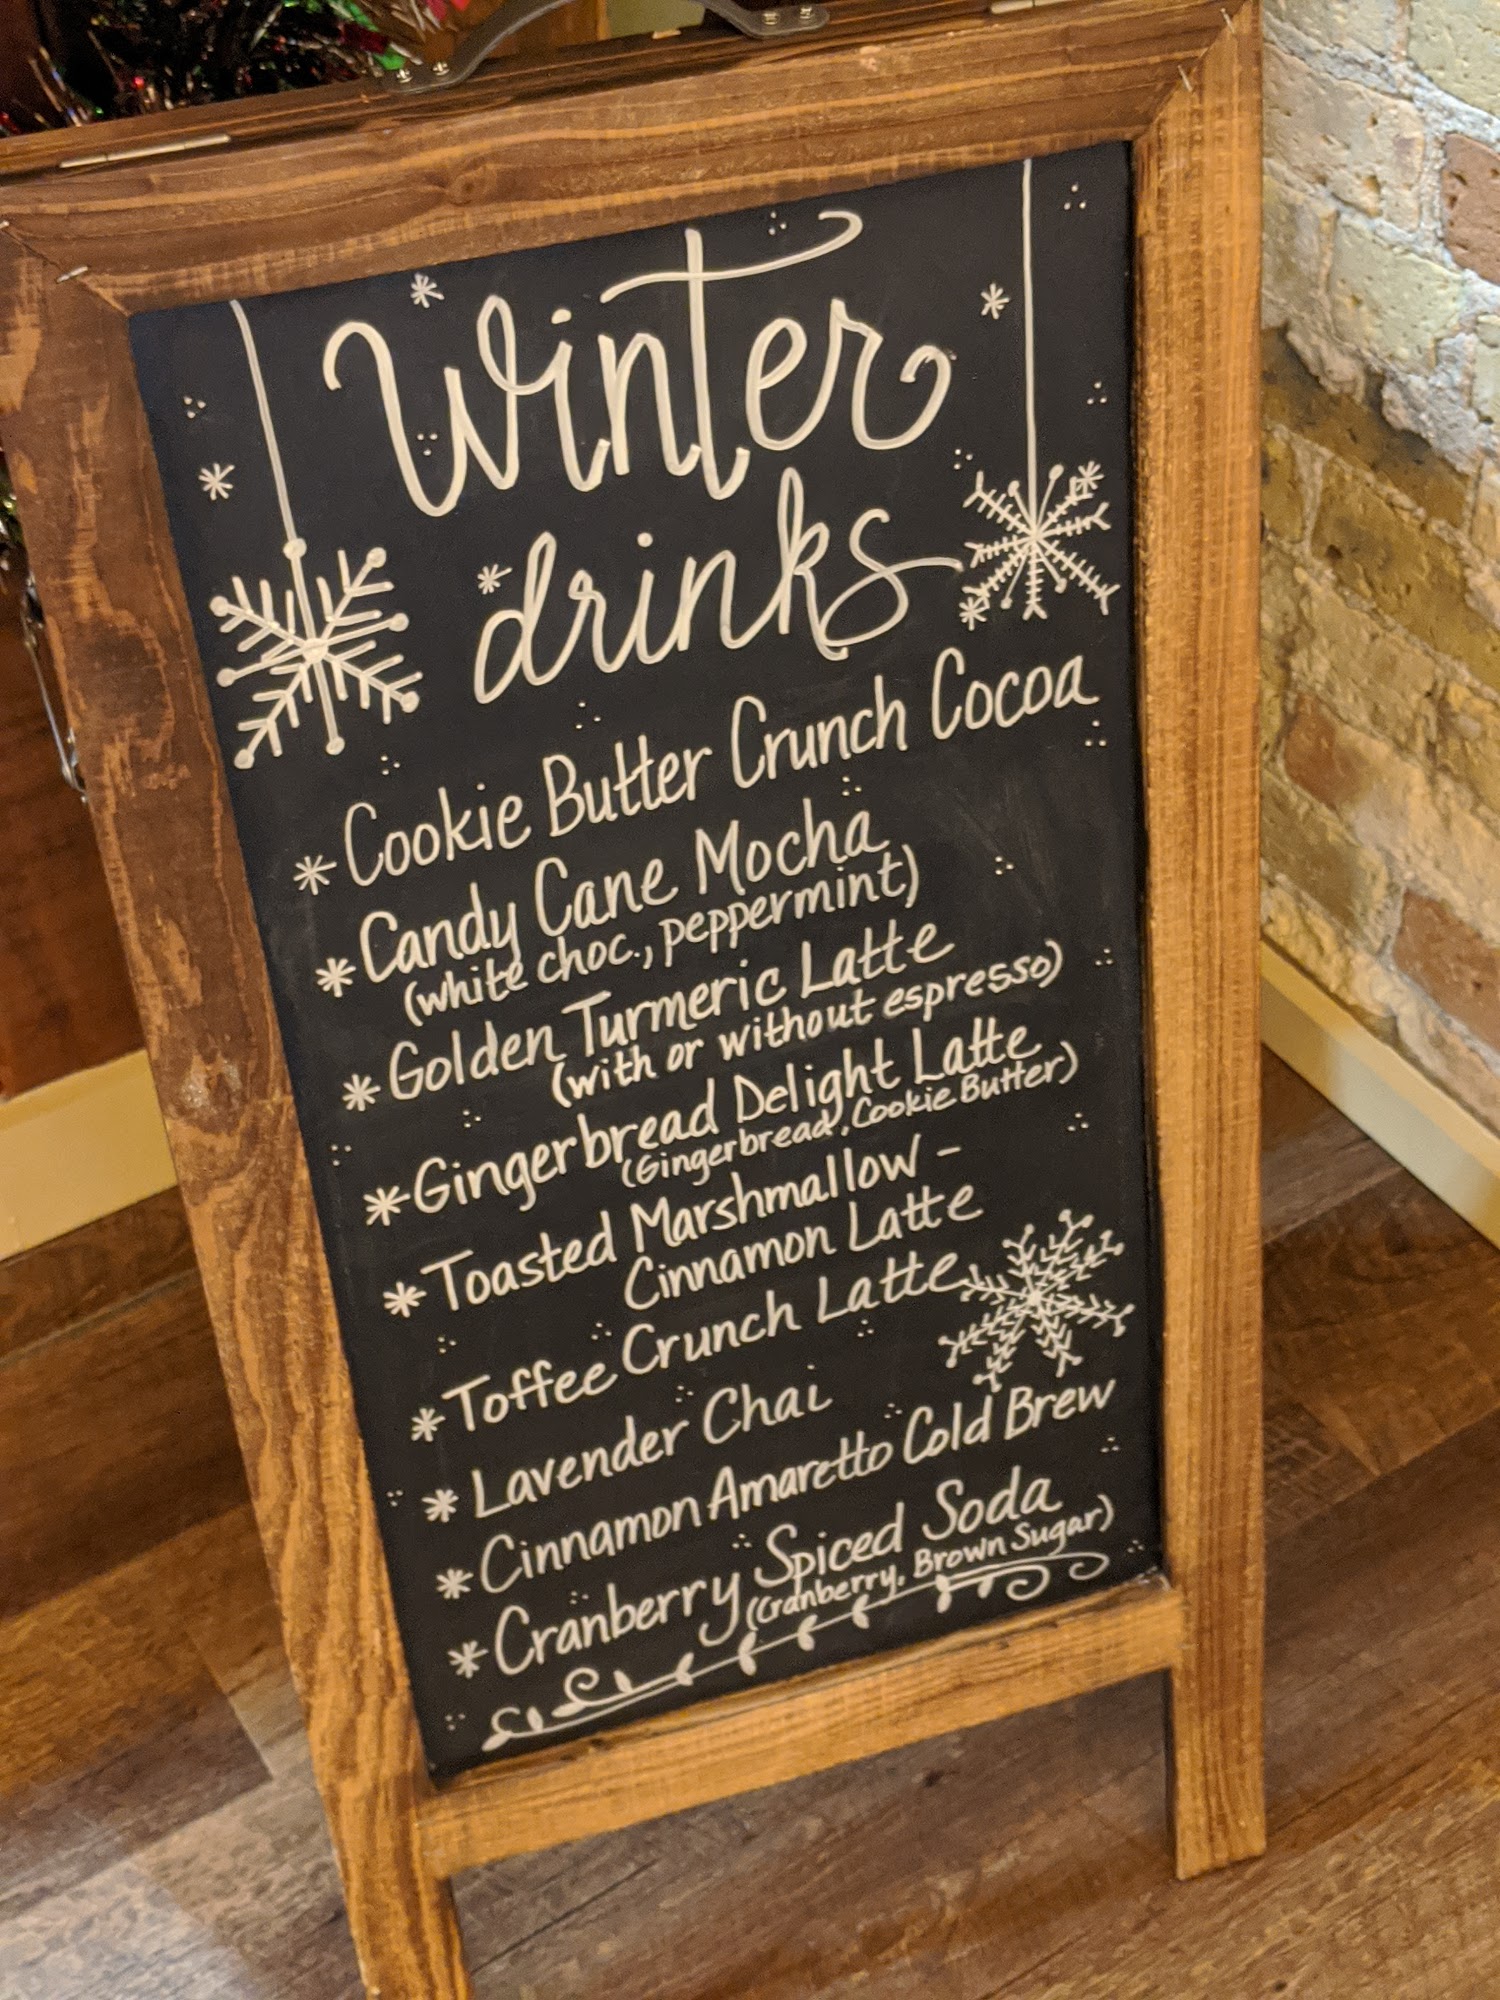 Winter
drinks
* Cookie Butter Crunch Cocoa
* Candy Cane Mocha
(white choc., peppermint)
* Golden Turmeric Latte
(with or without espresso)
* Gingerbread Delight Latte
(Gingerbread, Cookie Butter)
* Toasted Marshmallow -
Cinnamon Latte
* Toffee Crunch Latte
* Lavender Chai
* Cinnamon Amaretto Cold Brew
* Cranberry Spiced Soda
(Cranberry, Brown Sugar)